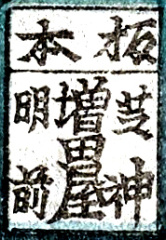 板本
芝神
増田屋
明前